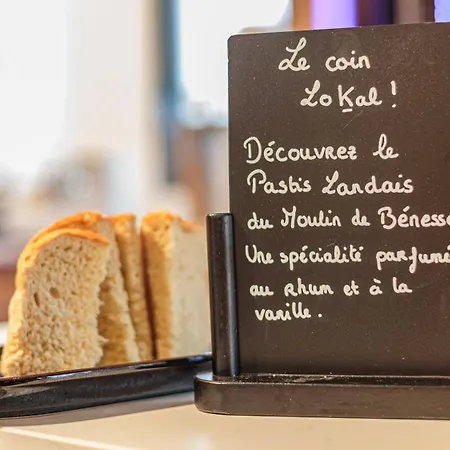 Le coin
LoKal !
Découvrez le
Pastis Landais
du Moulin de Bénesse
Une spécialité parfumé
au rhum et à la
vanille.